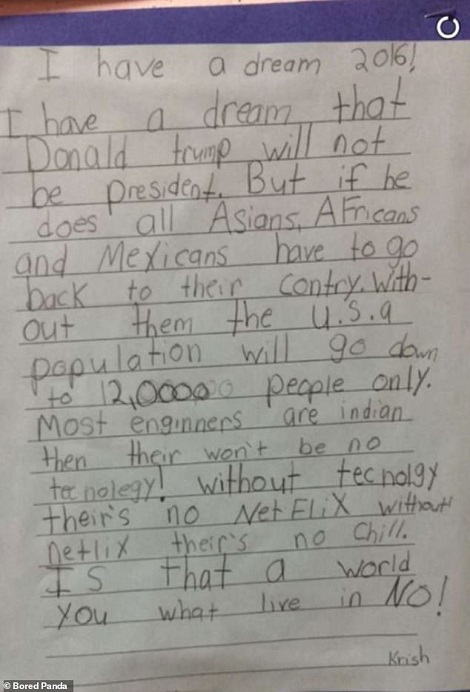 I have a dream 2016!
I have a dream that
Donald trump will not
be president. But if he
does all Asians, AFricans
and Mexicans have to go
back to their contry. With-
out them the U.S.a
population will go down
to 12,00000 people only.
Most enginners are indian
then their won't be no
tecnolegy! without tecnolgy
their's no NetFliX without
netlix their's no Chill.
IS that a world
you what live in NO!
Krish
© Bored Panda